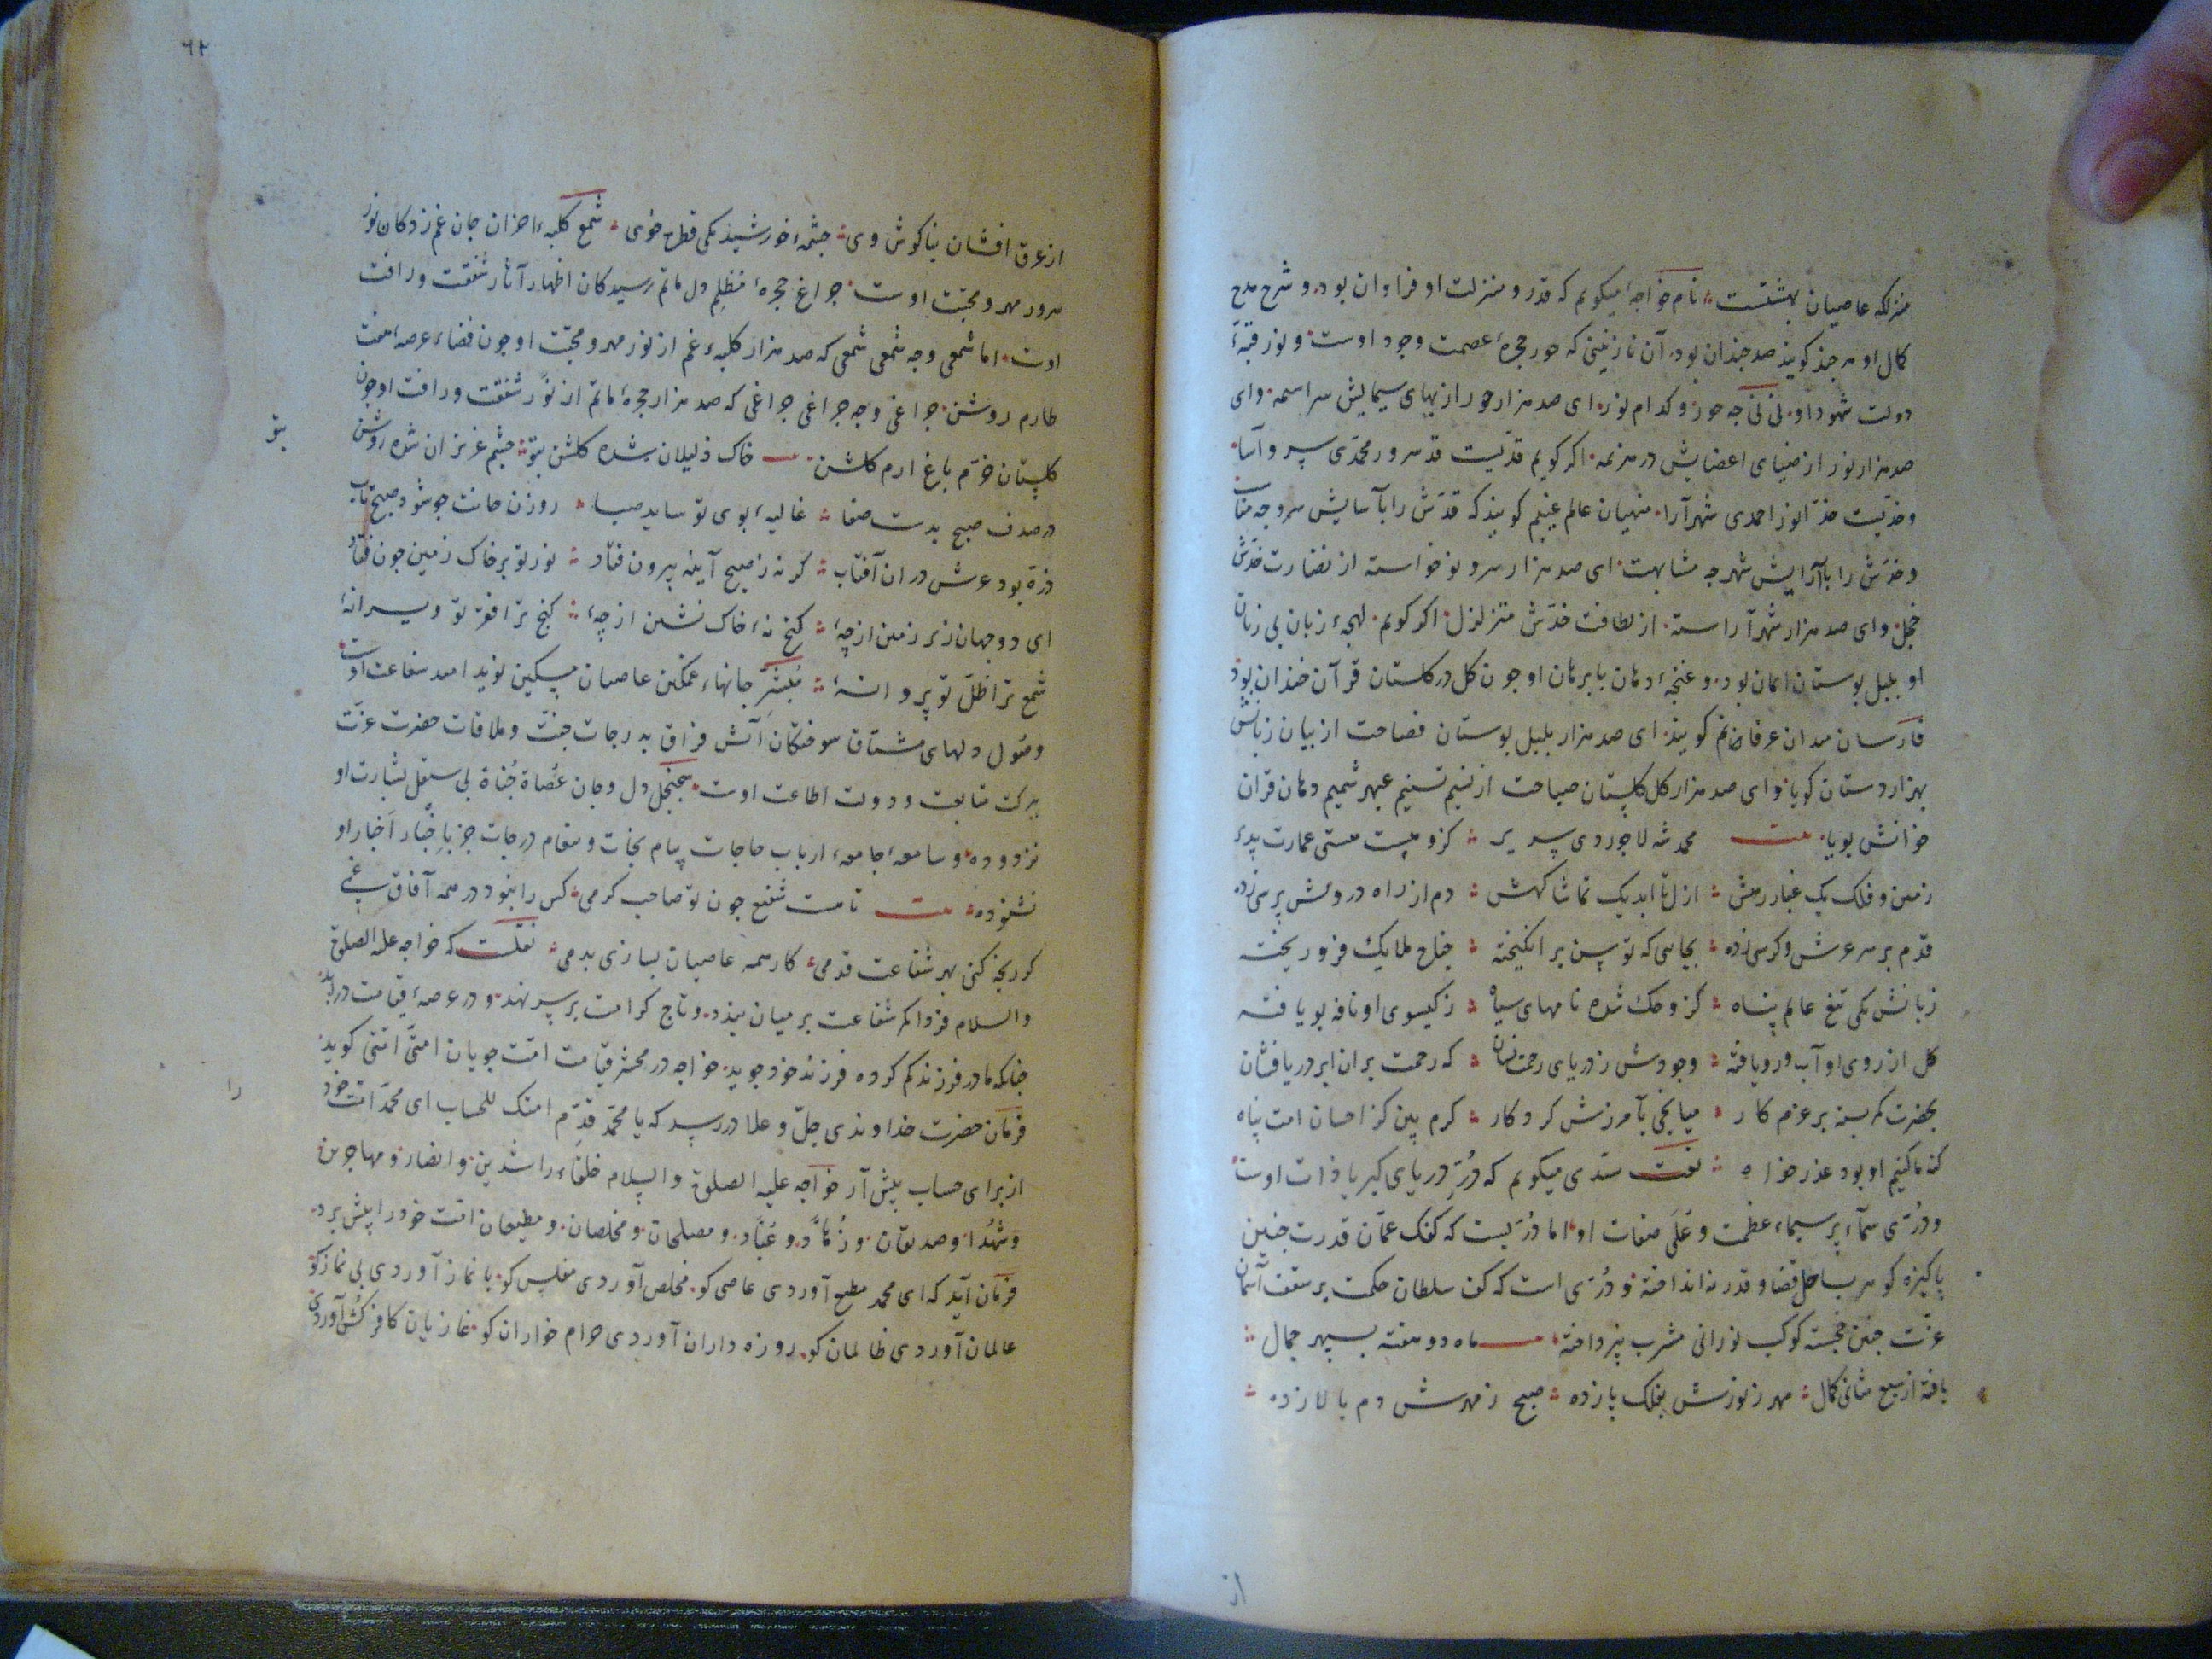 منزلکه عاصیان بهشتست نام خواجهٔ میکویم که قدر و منزلت او فراوان بود و شرح مدح
کمال او هر چند کویند صد چندان بود آن نازنینی که حور حجرهٔ عصمت وجود اوست و نور قبهٔ
دولت شهود او نی نی چه حور و کدام نور ای صد هزار حور از بهای سیمایش سراسمه وای
صد هزار نور از ضیای اعضایش در هزیمه اکر کویم قدیست قد سرور محمدی سرو آسا
و خدیست خد انور احمدی شهرآرا منهیان عالم غیبم کویند که قدش را بآسایش سرو چه مناسب
و خدش را باآرایش شهر چه مشابهت ای صد هزار سرو نوخواسته از نضارت قدش
خجل وای صد هزار شهر آراسته از لطافت خدش متزلزل اکر کویم لهجهٔ زبان بی زیان
او بلبل بوستان ایمان بود و غنچهٔ دهان با برهان او چون کل در کلستان قرآن خندان بود
فارسان میدان عرفانم کویند ای صد هزار بلبل بوستان فصاحت از بیان زبانش
بهزار دستان کویا وای صد هزار کل کلستان صباحت از نسیم تسنیم عبهر شمیم دهان قران
خوانش بویا بیت محمد شه لاجوردی سریر کزو هست هستی عمارت پذیر
زمین و فلک یک غبار رهش ازل تا ابد یک تماشاکهش دم از راه درویش پرسی زده
قدم بر سر عرش و کرسی زده بجایی که توسن برانکیخته جناح ملایک فرو ریخته
زبانش یکی تیغ عالم پناه کزو حک شده نامهای سیاه ز کیسوی او نافه بو یافته
کل از روی او آب رو یافته وجودش ز دریای رحمت نشان که رحمت بران ابر دریافشان
بحضرت کمر بسته بر عزم کار میانجی بآمرزش کردکار کرم بین کز احسان امت پناه
کنه ما کنیم او بود عذر خواه نعت سیدی میکویم که در دریای کبریا ذات اوست
و دری سمآء پر سیماء عظمت و علی صفات او اما دریست که کفک عمان قدرت چنین
پاکیزه کوهر بساحل قضا و قدر نه انداخته و دری است که کف سلطان حکمت بر سقف آسمان
عزت چنین خجسته کوکب نورانی مشرب نپرداخته بیت ماه دو هفته بسپهر جمال
یافته از سبع مثانی کمال مهر ز نورش بفلک پا زده صبح ز مهرش دم بالا زده
از
٦٢
از عرق افشان بناکوش وی چشمهٔ خورشید یکی قطره خوی شمع کلبهٔ احزان جان غم زدکان نور
سرور مهر و محبت اوست چراغ حجرهٔ مظلم دل ماتم رسیدکان اظهار آثار شفقت و رافت
اوست اما شمعی و چه شمعی شمعی که صد هزار کلبهٔ غم از نور مهر و محبت او چون فضاء عرصهٔ هفت
طارم روشن چراغی و چه چراغی چراغی که صد هزار حجرهٔ ماتم از نور شفقت و رافت او چون
کلستان خرم باغ ارم کلشن بیت خاک ذلیلان شده کلشن بتو چشم عزیزان شده روشن
بتو
در صدف صبح بدست صفا غالیهٔ بوی تو ساید صبا روزن جانت چو شود صبح تاب
ذره بود عرش دران آفتاب کر نه ز صبح آینه بیرون فتاد نور تو بر خاک زمین چون فتاد
ای دو جهان زیر زمین از چهٔ کنج نهٔ خاک نشین از چهٔ کنج ترا فقر تو ویرانهٔ
شمع ترا ظل تو پروانهٔ مبشر جانهاء غمکین عاصیان مسکین نوید امید شفاعت اوست
وصول دلهای مشتاق سوختکان آتش فراق بدرجات جنت و ملاقات حضرت عزت
ببرکت متابعت و دولت اطاعت اوست سجنجل دل و جان عصاة جناة بی صیقل بشارت او
نزدوده و سامعهٔ جامعهٔ ارباب حاجات پیام نجات و مقام درجات جز باخبار اخبار او
نشنوده بیت تا هست شفیع چون تو صاحب کرمی کس را نبود در همه آفاق غمی
کر رنجه کنی بهر شفاعت قدمی کار همه عاصیان بسازی بدمی نقلست که خواجه علیه الصلوة
والسلام فردا کمر شفاعت بر میان بندد و تاج کرامت بر سر نهد و در عرصهٔ قیامت درآید
چنانکه مادر فرزند کم کرده فرزند خود جوید خواجه در محشر قیامت امت جویان امتی امتی کوید
فرمان حضرت خداوندی جل و علا در رسد که یا محمد قدم امتک للحساب ای محمد امت خود
را
از برای حساب پیش آر خواجه علیه الصلوة والسلام خلفاء راشدین و انصار و مهاجرین
و شهدا و صدیقان و زهاد و عباد و مصلحان و مخلصان و مطیعان امت خود را پیش برد
فرمان آید که ای محمد مطیع آوردی عاصی کو مخلص آوردی مفلس کو با نماز آوردی بی نماز کو
عالمان آوردی ظالمان کو روزه داران آوردی حرام خواران کو غازیان کافر کش آوردی